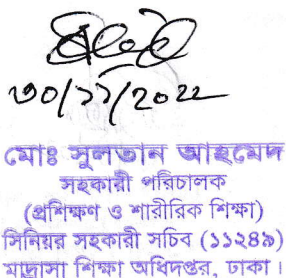 ৩০/১১/২০২২
মোঃ সুলতান আহমেদ
সহকারী পরিচালক
(প্রশিক্ষণ ও শারীরিক শিক্ষা)
সিনিয়র সহকারী সচিব (১১২৪৯)
মাদ্রাসা শিক্ষা অধিদপ্তর, ঢাকা।